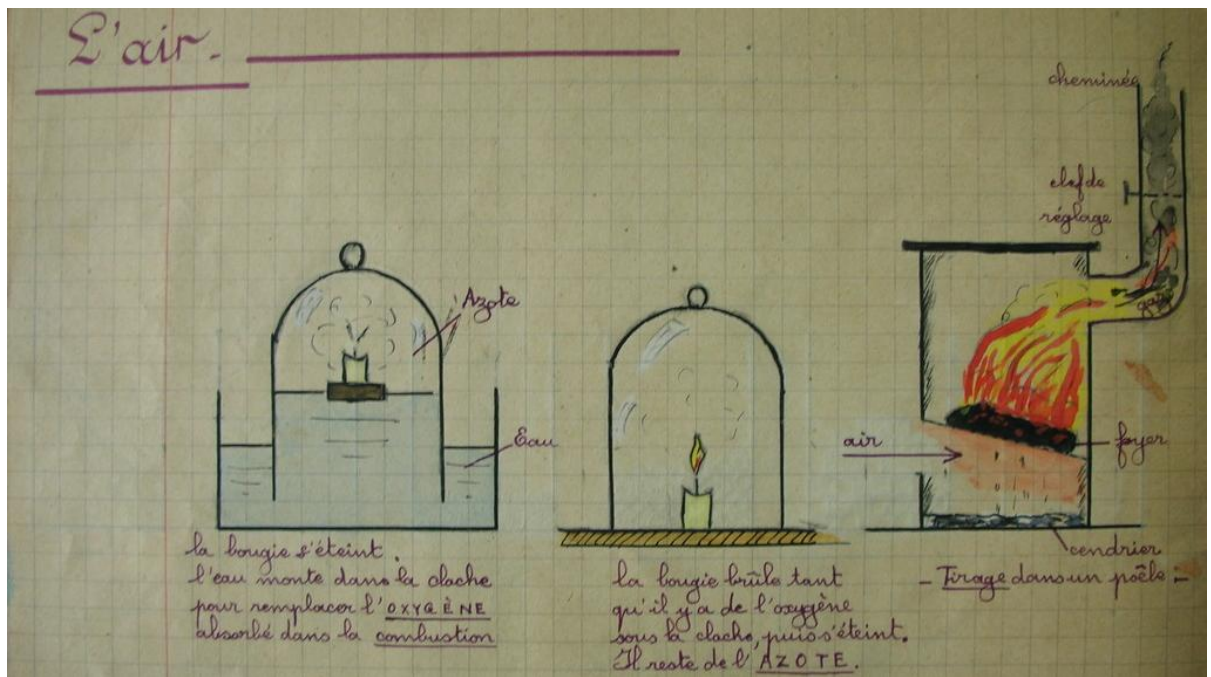 L'air.
Azote
Eau
la bougie s'éteint.
l'eau monte dans la cloche
pour remplacer l'OXYGÈNE
absorbé dans la combustion
la bougie brûle tant
qu'il y a de l'oxygène
sous la cloche, puis s'éteint.
Il reste de l'AZOTE.
cheminée
clef de
réglage
gaz
air
foyer
cendrier
- Tirage dans un poêle -